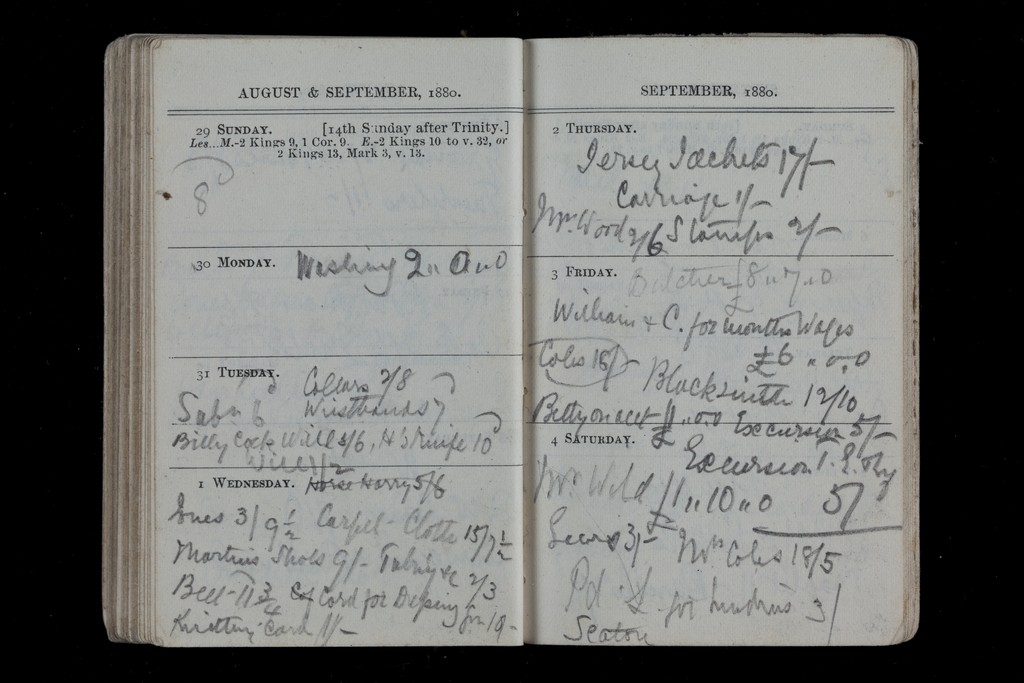 AUGUST & SEPTEMBER, 1880.
29 SUNDAY. [14th Sunday after Trinity.]
Les...M.-2 Kings 9, 1 Cor. 9. E.-2 Kings 10 to v. 32, or
2 Kings 13, Mark 3, v. 13.
8d
30 MONDAY. Washing 2 " 0 " 0
31 TUESDAY. Collars 2/8
6 Wristbands 7
Billy Cock Will 2/6, H's Knife 10
Will 1/2
1 WEDNESDAY. Horse Harry 5/6
3/9 1/2 Carpet - Cloth 15/7 1/2
Martins Shoes 9/- 2/3
3/4 Cord for
Knitting Card 1/-
SEPTEMBER, 1880.
2 THURSDAY.
Jersey Jackets 17/-
Carriage 1/-
Mrs. Wood 2/6 Stamps 2/-
3 FRIDAY. Butcher £8 " 7 " 0
William & C. for months Wages
Coles 18/- £6 " 0 " 0
Blacksmith 12/10
Betty on acct £1 " 0 " 0 Excursion 5/-
4 SATURDAY. Excursion
Mrs Wild £1 " 10 " 0 5/
3/- Mrs Coles 18/5
Pd for 3/
Seaton